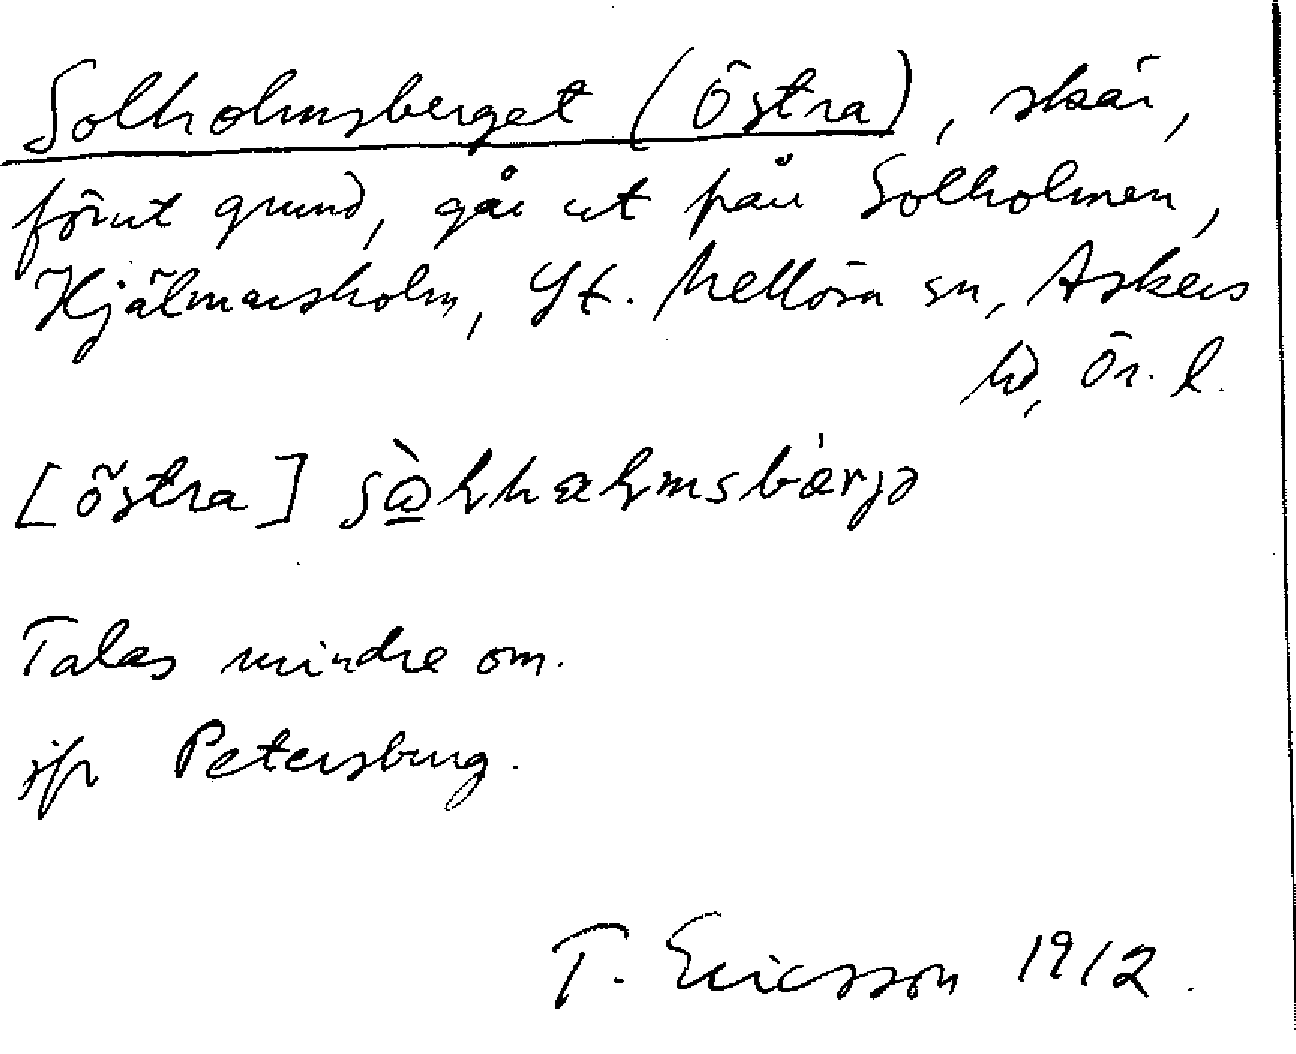 Solholmsberget (Östra), skär,
förut grund, går ut från Solholmen,
Hjälmarsholm, St. Mellösa sn, Askers
hd, Ör. l.
[östra]
Talas mindre om.
jfr Petersburg.
T. Ericsson 1912.